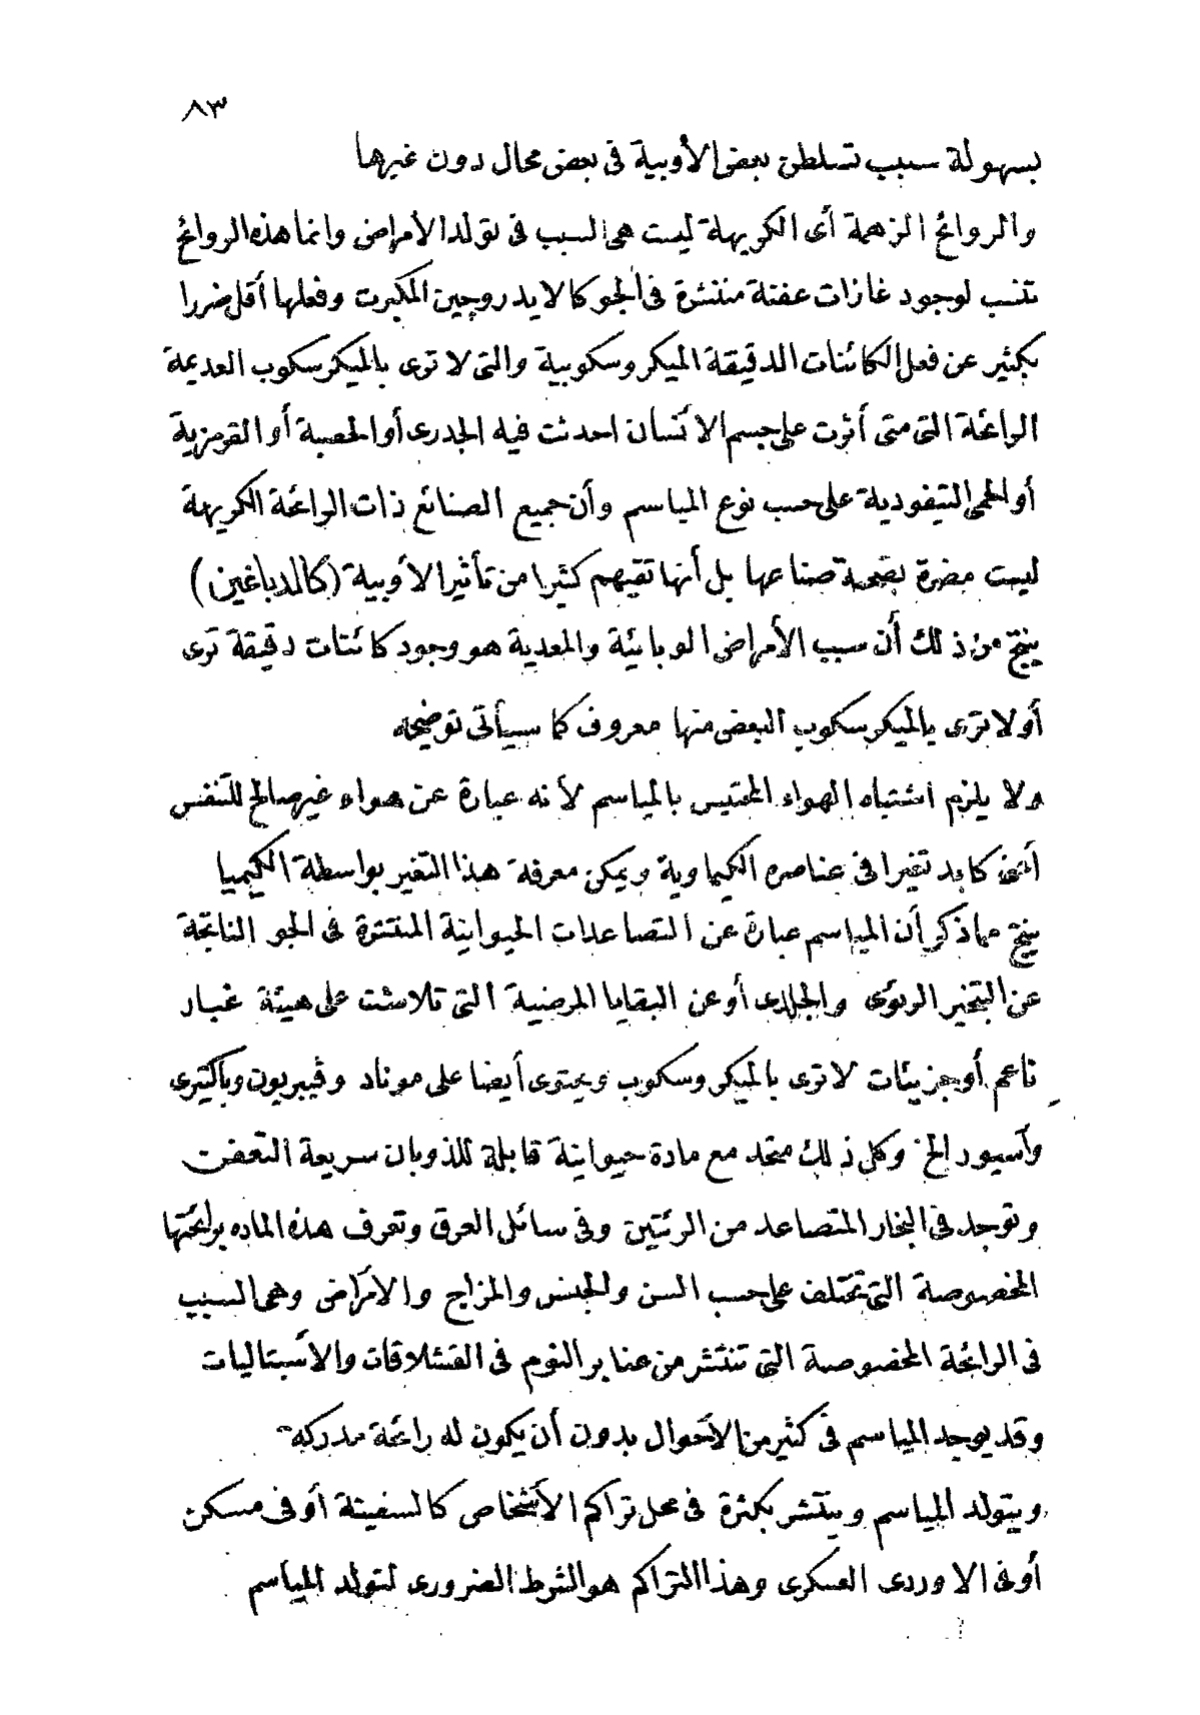 ٨٣
بسهولة سبب تسلطن بعض الأوبية فى بعض محال دون غيرها
والروائح الزهمة أى الكريهة ليست هى السبب فى تولد الأمراض وانما هذه الروائح
تنسب لوجود غازات عفنة منتشرة فى الجو كالايدروچين المكبرت وفعلها أقل ضررا
بكثير عن فعل الكائنات الدقيقة الميكروسكوبية والتى لا ترى بالميكرسكوب العديمة
الرائحة التى متى أثرت على جسم الانسان احدثت فيه الجدرى أو الحصبة أو القرمزية
أو الحمى التيفودية على حسب نوع المياسم وأن جميع الصنائع ذات الرائحة الكريهة
ليست مضرة بصحة صناعها بل أنها تقيهم كثيرا من تأثير الأوبية (كالدباغين)
ينتج من ذلك أن سبب الأمراض الوبائية والمعدية هو وجود كائنات دقيقة ترى
أو لا ترى بالميكرسكوب البعض منها معروف كما سيأتى توضيحه
ولا يلزم اشتباه الهواء المحتبس بالمياسم لأنه عبارة عن هواء غير صالح للتنفس
أعنى كابد تغيرا فى عناصره الكيماوية ويمكن معرفة هذا التغير بواسطة الكيميا
ينتج مما ذكر أن المياسم عبارة عن التصاعدات الحيوانية المنتشرة فى الجو الناتجة
عن التبخير الرئوى والجلدى أو عن البقايا المرضية التى تلاشت على هيئة غبار
ناعم أو جزيئات لا ترى بالميكروسكوب ويحتوى أيضا على موناد وڤيبريون وباكتيرى
وآسيور الخ وكل ذلك متحد مع مادة حيوانية قابلة للذوبان سريعة التعفن
وتوجد فى البخار المتصاعد من الرئتين وفى سائل العرق وتعرف هذه الماده برائحتها
المخصوصة التى تختلف على حسب السن والجنس والمزاج والامراض وهى السبب
فى الرائحة المخصوصة التى تنتشر من عنابر النوم فى القشلاقات والأسبتاليات
وقد يوجد المياسم فى كثير من الأحوال بدون أن يكون له رائحة مدركة
ويتولد المياسم وينتشر بكثرة فى محل تراكم الأشخاص كالسفينة أو فى مسكن
أو فى الاوردى العسكرى وهذا التراكم هو الشرط الضرورى لتولد المياسم